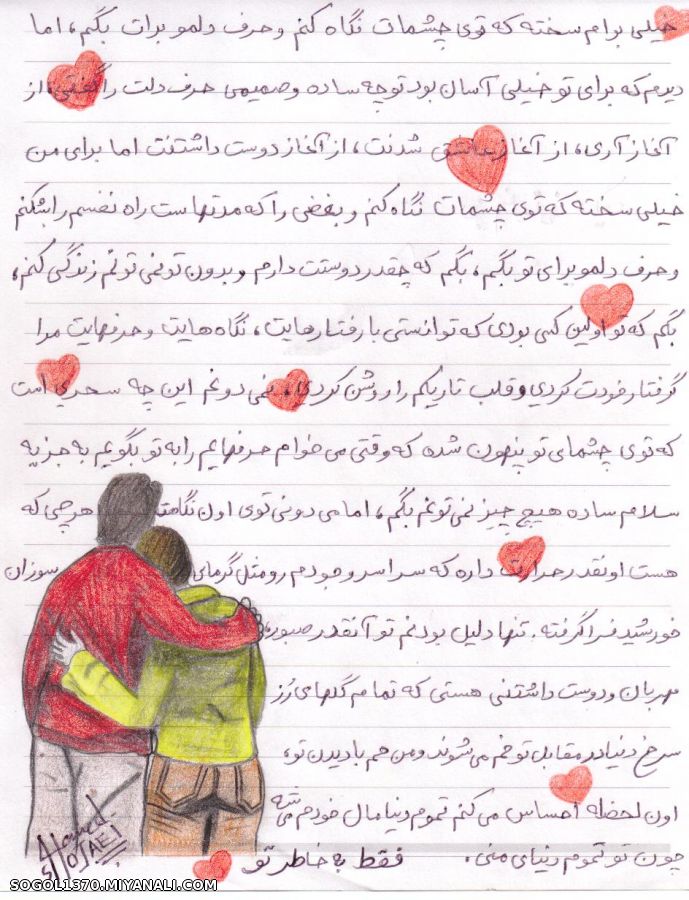 خیلی برام سخته که توی چشمات نگاه کنم و حرف دلمو برات بگم، اما
دیدم که برای تو خیلی آسان بود تو چه ساده و صمیمی حرف دلت را گفتی، از
آغاز آری، از آغاز عاشق شدنت، از آغاز دوست داشتنت اما برای من
خیلی سخته که توی چشمات نگاه کنم و بغضی را که مدتهاست راه نفسم را بشکنم
و حرف دلمو برای تو بگم، بگم که چقدر دوستت دارم و بدون تو نمی تونم زندگی کنم،
بگم که تو اولین کسی بودی که توانستی با رفتارهایت، نگاه هایت و حرفهایت مرا
گرفتار خودت کردی و قلب تاریکم را روشن کردی، نمی دونم این چه سحری است
که توی چشمای تو پنهون شده که وقتی می خوام حرفهایم را به تو بگویم به جزیه
سلام ساده هیچ چیز نمی تونم بگم، اما می دونی توی اون نگاهت هر چی که
هست اونقدر حرارت داره که سراسر وجودم رو مثل گرمای سوزان
خورشید فرا گرفته. تنها دلیل بودنم تو آنقدر صبور،
مهربان و دوست داشتنی هستی که تمام گلهای رُز
سرخ دنیا در مقابل تو خم می شوند و من هم با دیدن تو،
اون لحظه احساس می کنم تموم دنیا مال خودم می شه
چون تو تموم دنیای منی. فقط به خاطر تو
Hamed
HOJAEI
SOGOL1370.MIYANALI.COM